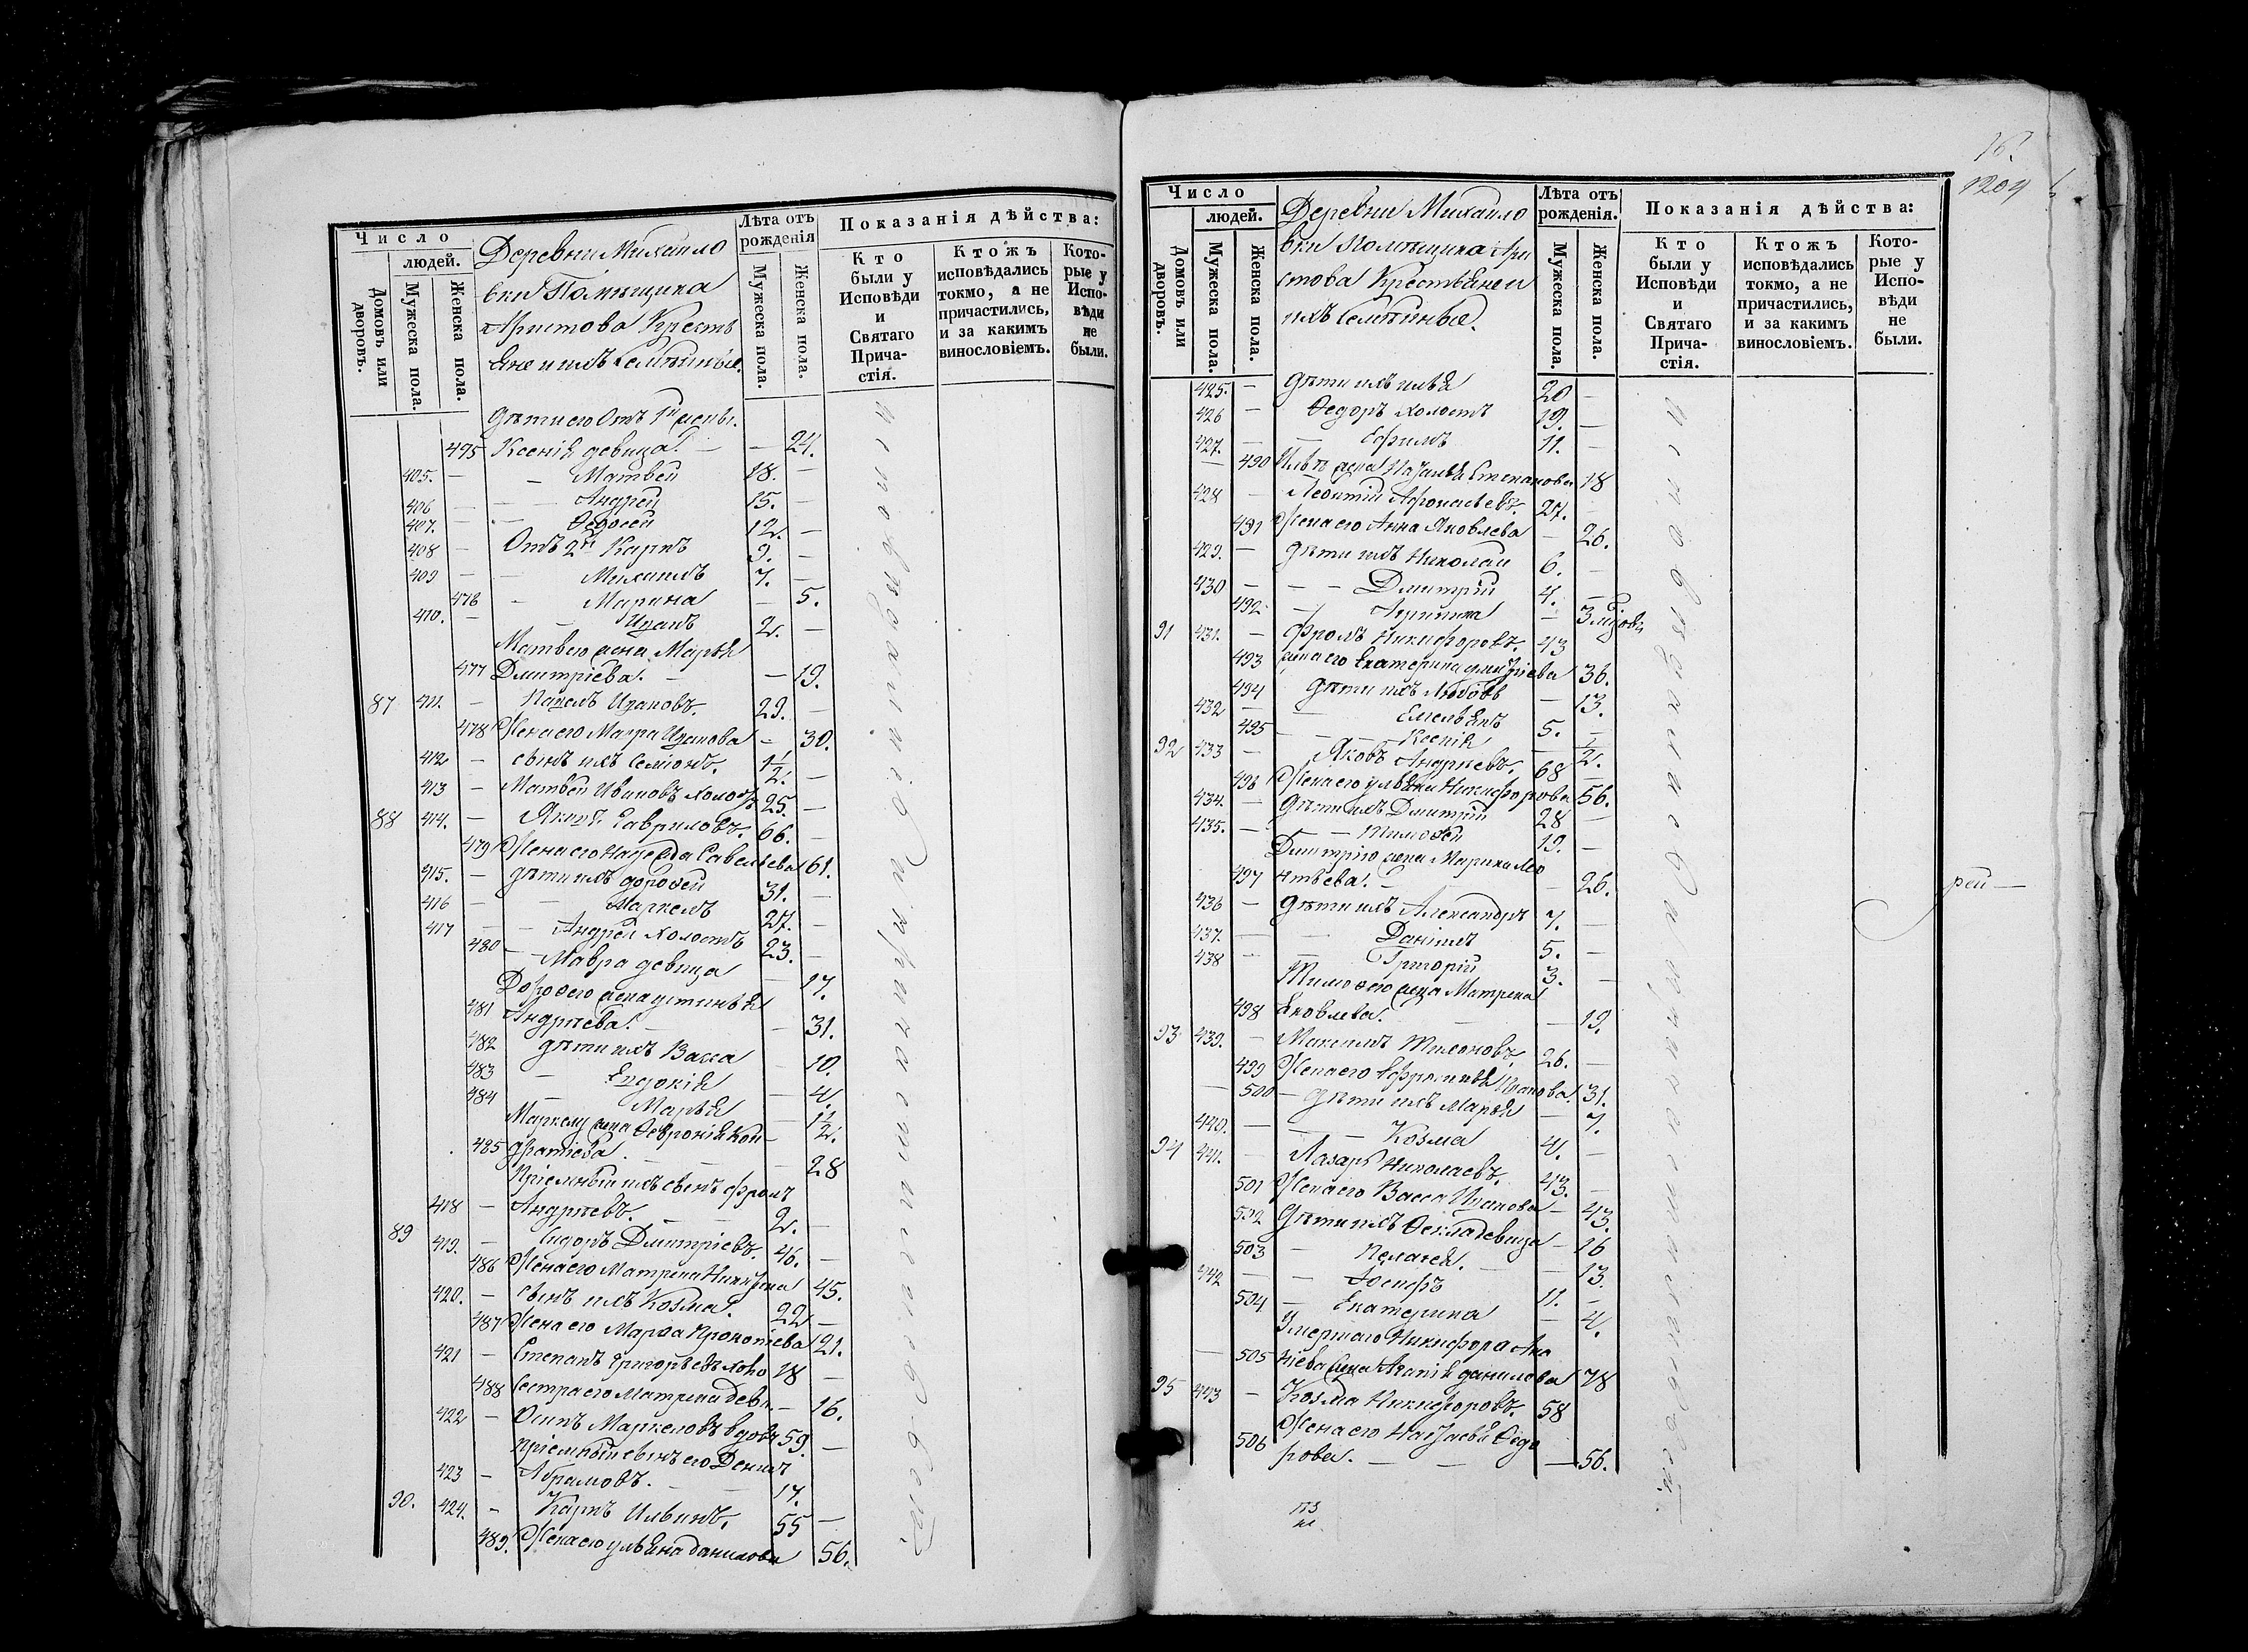 Число
людей.
Домовъ или дворовъ.
Мужеска пола.
Женска пола.
Деревни Михайло
вки Помѣщика
Аристова Кресть
яне и ихъ Семѣйные.
Лѣта отъ рожденія
Мужеска пола.
Женска пола.
Показанія дѣйства:
Кто были у Исповѣди и Святаго Прича-стія.
Ктожъ исповѣдались токмо, а не причастились, и за какимъ винословіемъ.
Кото-рые у Испо-вѣди не были.
дѣти его Отъ 1й жены.
475 Ксенія девица. — — 24.
405. — Матвей 18. —
406 — Андрей 15. —
407. — Ѳедосей 12. —
408 — Отъ 2й Карпъ 9. —
409 — Михаилъ 7. —
476 — Марина — 5.
410. — Иванъ 2. —
Матвею жена Марья
477 Дмитріева. — — 19.
87 411. — Павелъ Ивановъ. 29. —
478 Жена его Мавра Иванова — 30.
412 — сынъ ихъ Семіонъ. 1/2. —
413 — Матвей Ивановъ холостъ 25. —
88 414. — Яковъ Гавриловъ. 66. —
479 Жена его Надежда Савельева 61.
415. — дѣти ихъ Дороѳей 31. —
416 — Маркелъ 27. —
417 — Андрей холостъ 23. —
480 — Мавра девица 17.
Дороѳею жена Устинья
481 Андрѣева. — — 31.
482 дѣти ихъ Васса — 10.
483 — Евдокія — 4.
484 — Марья — 1/2.
Маркелу жена Ѳевронія Кон-
485 дратіева. — — 28
Пріемный ихъ сынъ Фролъ
418 — Андрѣевъ. — 2. —
89 419. — Сидоръ Дмитріевъ. 46. —
486 Жена его Матрена 45.
420. — сынъ ихъ Козма. 22 —
487 Жена его Марѳа Прокопіева 21.
421 — Степанъ Григорьевъ холо 18 —
488 Сестра его Матрена дев. — 16.
422 — Осипъ Маркеловъ вдовъ 59. —
Пріемный сынъ его Денисъ
423 — Абрамовъ. — 17.
90. 424. — Карпъ Ильинъ. 55 —
489. Жена его Ульяна Данилова 56.
исповѣдались и причастились всѣ
16.
1209
Число
людей.
Домовъ или дворовъ.
Мужеска пола.
Женска пола.
Деревни Михайло
вки Помѣщика Ари
стова Крестьяне и
ихъ Семѣйные.
Лѣта отъ рожденія.
Мужеска пола.
Женска пола.
Показанія дѣйства:
Кто были у Исповѣди и Святаго Прича-стія.
Ктожъ исповѣдались токмо, а не причастились, и за какимъ винословіемъ.
Кото-рые у Испо-вѣди не были.
425. — дѣти ихъ Илья 20 —
426 — Ѳедоръ холостъ 19. —
427. — Ефимъ 11. —
490 Ильѣ жена Наталья Степанова 18
428 — Леонтій 27. —
491 Жена его Анна Яковлева — 26.
429. — дѣти ихъ Николай 6. —
430 — Дмитрій 4. —
492 — — 3
91 431. — Фролъ Никифоровъ. 43
493 жена его Екатерина 36.
494 дѣти ихъ Любовь — 13.
432 — Емельянъ 5. —
495 — Ксенія — 1/2.
92 433 — Яковъ Андрѣевъ. 68 —
496 Жена его Ульяна Никифорова 56.
434. — дѣти ихъ Дмитрій 28 —
435. — Тимоѳей 19. —
Дмитрію жена Марина Лео
497 нтьева. — — 26.
436 — дѣти ихъ Александръ 7. —
437. — Даніилъ 5. —
438 — Григорій 3. —
Тимоѳею жена Матрена
498 Яковлева. — — 19.
93 439. — Максимъ Тихоновъ. 26. —
499 Жена его Ефросинья Иванова. 31.
500 — дѣти ихъ Марья — 7.
440. — Козма 4. —
94 441. — Лазарь Николаевъ. 43. —
501 Жена его Васса Иванова — 43.
502 дѣти ихъ Ѳекла девица — 16
503 — Пелагея. — 13.
442 — Іосифъ 11. —
504 — Екатерина — 4.
Умершаго Никифора Ана
505 ніева жена Агапія Данилова 78
95 443 — Козма Никифоровъ. 58
Жена его Наталья Ѳедо
506 рова. — — 56.
исповѣдались и причастились всѣ.
рей —